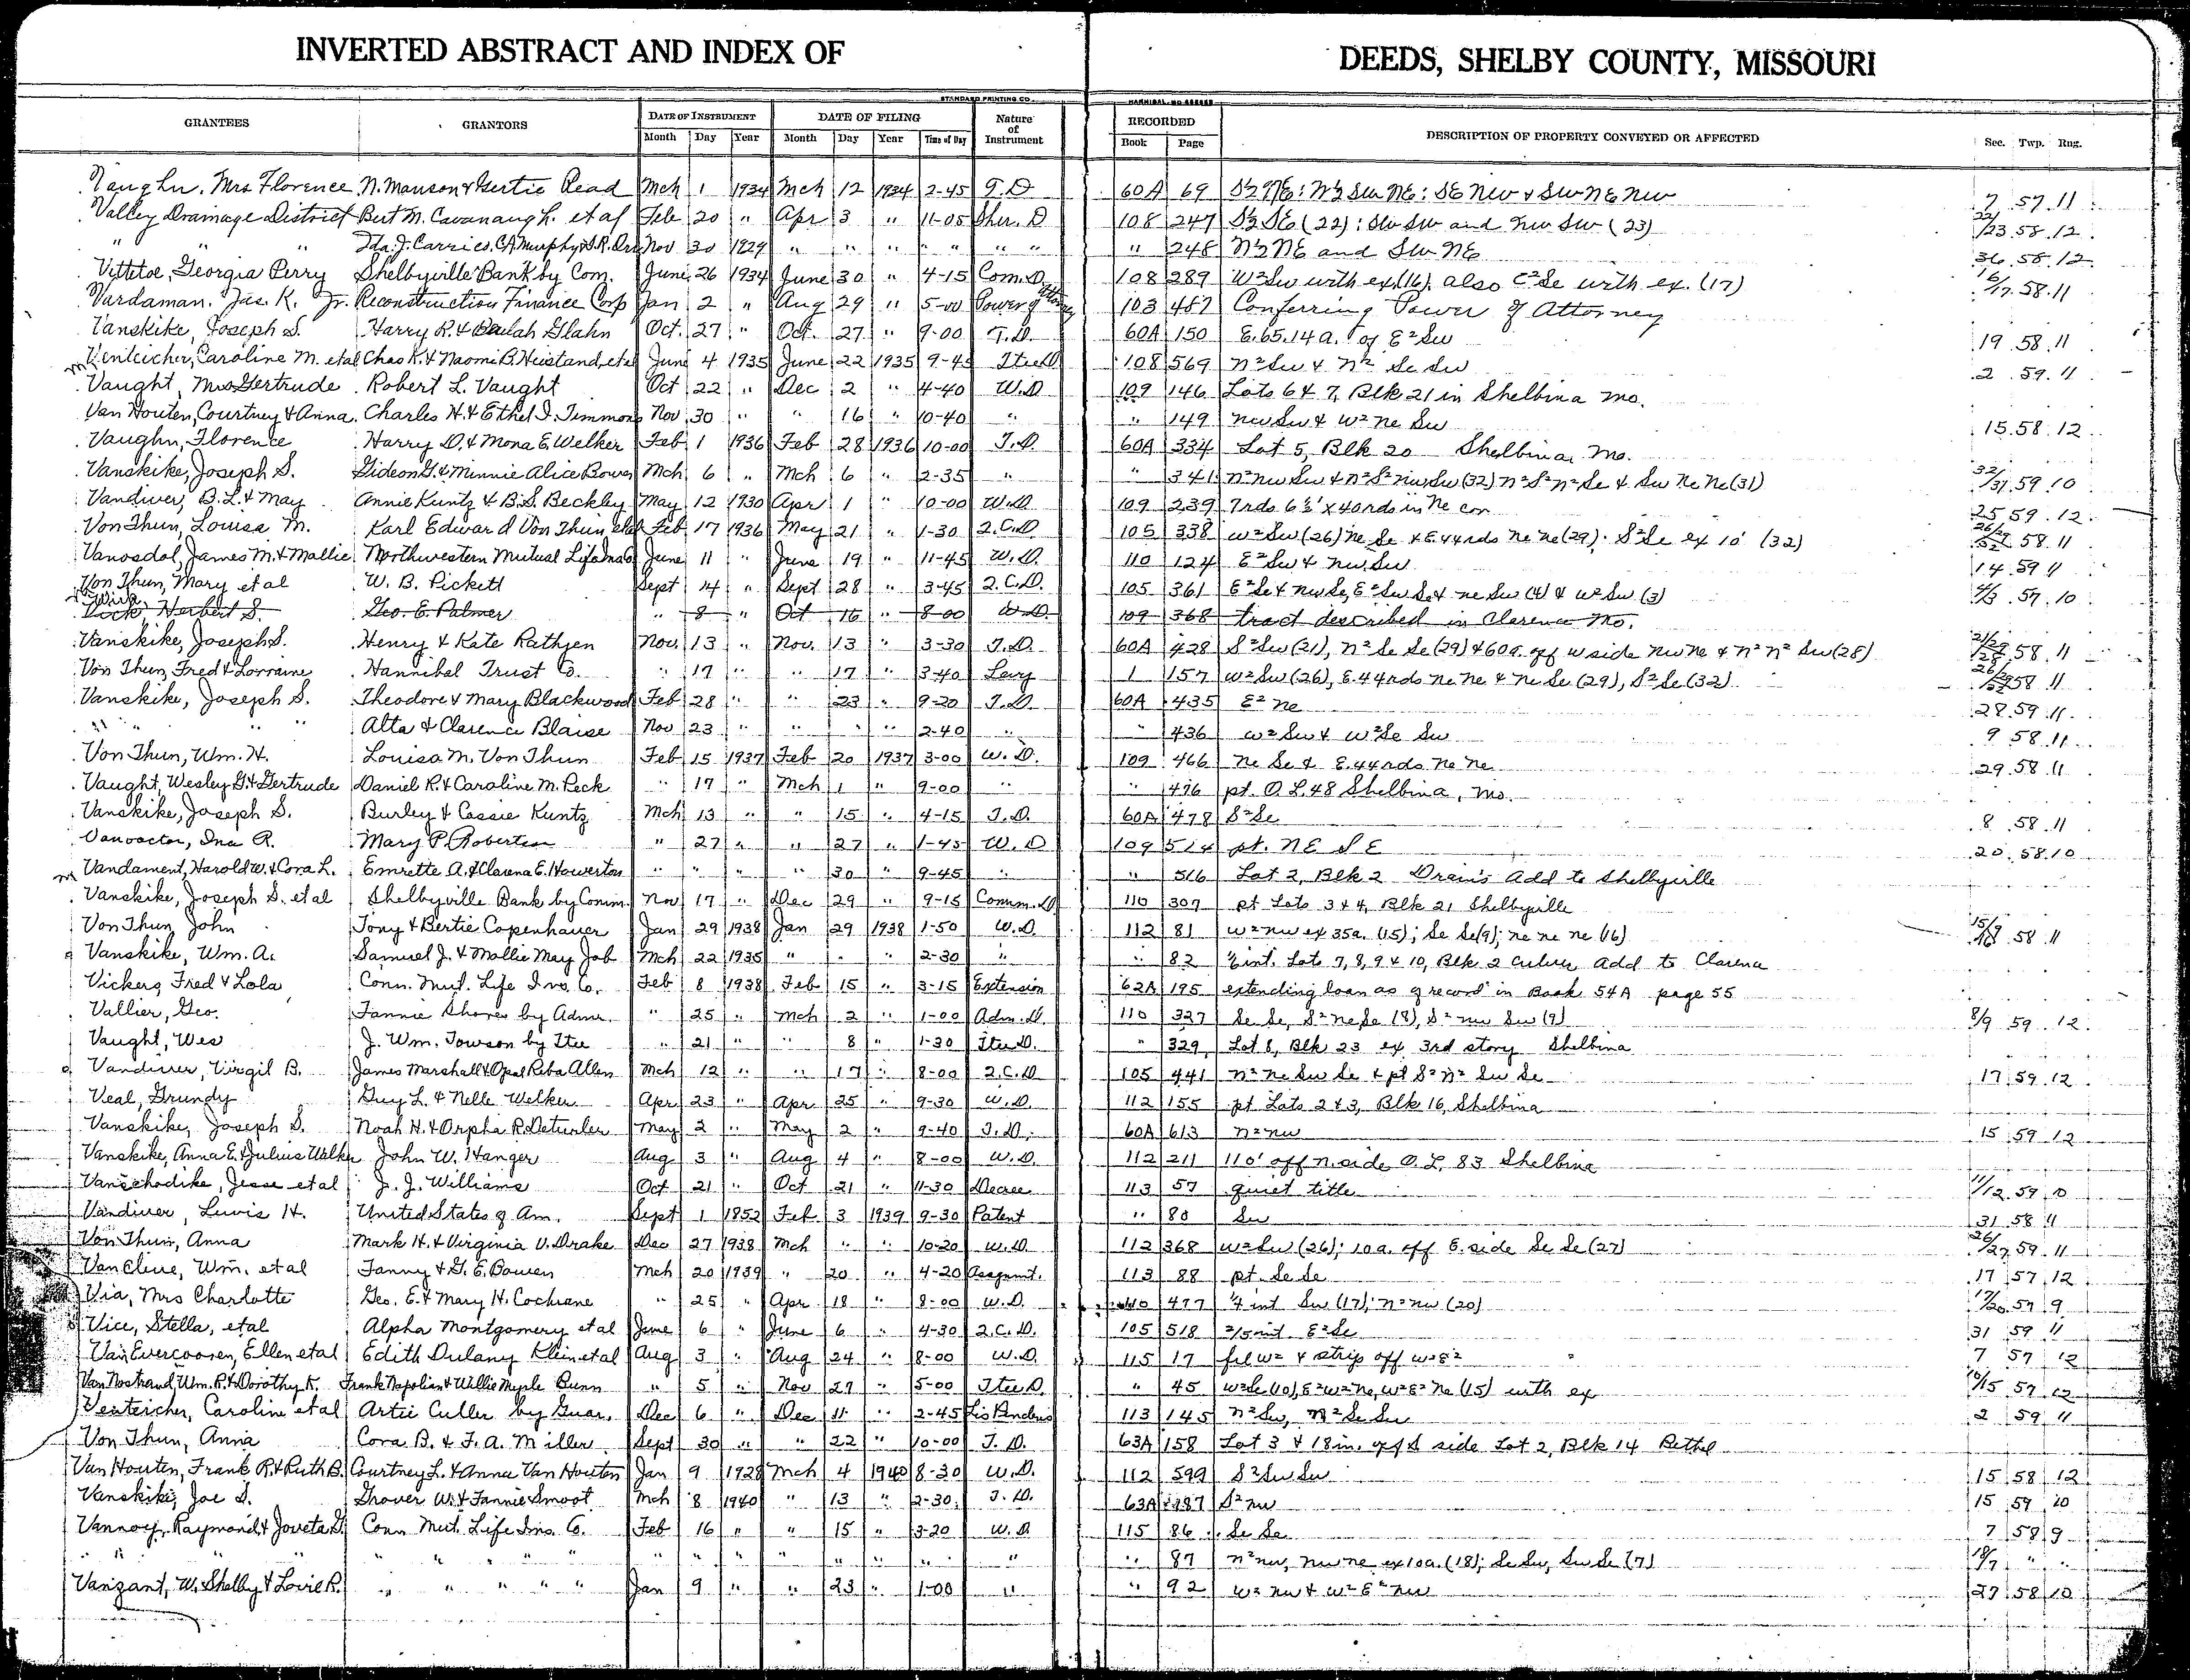 INVERTED ABSTRACT AND INDEX OF DEEDS, SHELBY COUNTY, MISSOURI
STANDARD PRINTING CO. HANNIBAL, MO
GRANTEES GRANTORS DATE OF INSTRUMENT DATE OF FILING Nature of Instrument RECORDED DESCRIPTION OF PROPERTY CONVEYED OR AFFECTED Sec. Twp. Rng.
Month Day Year Month Day Year Time of Day Book Page
Vaughn, Mrs Florence N. Manson & Gertie Read Mch 1 1934 Mch 12 1934 2-45 T.D 60A 69 S½ NE: N½ SW NE: SE NW & SW NE NW 7 57 11
Valley Drainage District Bert M. Cavanaugh et al Feb 20 " Apr 3 " 11-05 Sher. D 108 247 S½ SE (22): SW SW and NW SW (23) 22/23 58 12
" " " Ida J. Carries, C.A. Murphy & R. Nov 30 1929 " " " " " " " " 248 N½ NE and SW NE 36 58 12
Vittetoe Georgia Perry Shelbyville Bank by Com. June 26 1934 June 30 " 4-15 Com. D. 108 289 W²SW with ex (16) also E²Se with ex. (17) 16/17 58 11
Vardaman, Jas. K. Jr. Reconstruction Finance Corp Jan 2 " Aug 29 " 5-00 Power of Attorney 103 487 Conferring Power of Attorney
Vanskike, Joseph S. Harry R. & Beulah Glahn Oct. 27 " Oct. 27 " 9-00 T.D. 60A 150 E. 65.14 a. of E² Sw 19 58 11
Caroline M. etal Chas K. & Naomi B. Heistand, etal June 4 1935 June 22 1935 9-45 Itee D 108 569 N² Sw & N² Se Sw 2 59 11
Vaught, Mrs Gertrude Robert L. Vaught Oct 22 " Dec 2 " 4-40 W.D 109 146 Lots 6 & 7, Blk 21 in Shelbina Mo.
Van Houten, Courtney & Anna Charles H. & Ethel I. Timmons Nov 30 " " 16 " 10-40 " " 149 nw Sw & W² ne Sw 15 58 12
Vaughn, Florence Harry D. & Mona E. Welker Feb 1 1936 Feb 28 1936 10-00 T.D. 60A 334 Lot 5, Blk 20 Shelbina, Mo.
Vanskike, Joseph S. Gideon G. & Minnie Alice Bower Mch 6 " Mch 6 " 2-35 " " 341 n² nw Sw & n² S² nw Sw (32) n² S² n² Se & Sw Ne Ne (31) 32/31 59 10
Vandiver, B.L. & May Annie Kuntz & B.S. Beckley May 12 1930 Apr 1 " 10-00 W.D. 109 239 7 rds 6½' x 40 rds in Ne cor 25 59 12
Von Thun, Louisa M. Karl Edward Von Thun etal Feb 17 1936 May 21 " 1-30 2.C.D. 105 338 W² Sw (26) Ne Se & E 44 rds Ne Ne (29); S² Se ex 10' (32) 26/29 32 58 11
Vanosdol, James M. & Mallie Northwestern Mutual Life Ins Co June 11 " June 19 " 11-45 W.D. 110 124 E² Sw & Nw Sw 14 59 11
Von Thun, Mary et al W. B. Pickett Sept 14 " Sept 28 " 3-45 2.C.D. 105 361 E² Se & nw Se, E² Sw Se & ne Sw (4) & W² Sw (3) 4/3 57 10
Vick, Herbert S. Geo. E. Palmer " 8 " Oct 16 " 8-00 W.D. 109 368 tract described in Clarence Mo.
Vanskike, Joseph S. Henry & Kate Rathjen Nov. 13 " Nov. 13 " 3-30 T.D. 60A 428 S² Sw (21), n² Se Se (29) & 60a. off w side nw ne & n² n² Sw (28) 21/29 28 58 11
Von Thun, Fred & Lorraine Hannibal Trust Co. " 17 " " 17 " 3-40 Levy 1 157 W² Sw (26), E. 44 rds Ne Ne & Ne Se (29), S² Se (32) 58 11
Vanskike, Joseph S. Theodore & Mary Blackwood Feb 28 " " 23 " 9-20 T.D. 60A 435 E² Ne 28 59 11
" " " Alta & Clarence Blaise Nov 23 " " " " 2-40 " " 436 W² Sw & W² Se Sw 9 58 11
Von Thun, Wm. H. Louisa M. Von Thun Feb 15 1937 Feb 20 1937 3-00 W.D. 109 466 Ne Se & E. 44 rds Ne Ne 29 58 11
Vaught, Wesley G. & Gertrude Daniel R. & Caroline M. Peck " 17 " Mch 1 " 9-00 " " 476 pt. O.L. 48 Shelbina, Mo.
Vanskike, Joseph S. Burley & Cassie Kuntz Mch 13 " " 15 " 4-15 T.D. 60A 478 S² Se 8 58 11
Vanvactor, Ina R. Mary P. Robertson " 27 " " 27 " 1-45 W.D 109 514 pt. NE SE 20 58 10
Vandament, Harold W. & Cora L. Emrette A. & Clarena E. Howerton " " " " 30 " 9-45 " " 516 Lot 2, Blk 2 Drain's Add to Shelbyville
Vanskike, Joseph S. et al Shelbyville Bank by Comm. Nov 17 " Dec 29 " 9-15 Comm. D 110 307 pt Lots 3 & 4, Blk 21 Shelbyville
Von Thun, John Tony & Bertie Copenhaver Jan 29 1938 Jan 29 1938 1-50 W.D. 112 81 W² nw ex 35a. (15); Se Se (9); ne ne ne (16) 15/9 16 58 11
Vanskike, Wm. A. Samuel J. & Mollie May Job Mch 22 1935 " " " 2-30 " " 82 ⅙ int. Lots 7, 8, 9 & 10, Blk 2 Culver Add to Clarence
Vickers, Fred & Lola Conn. Mut. Life Ins. Co. Feb 8 1938 Feb 15 " 3-15 Extension 62A 195 extending loan as of record in Book 54A page 55
Vallier, Geo. Fannie Shores by Admr. " 25 " Mch 2 " 1-00 Adm. D. 110 327 Se Se, S² ne Se (8), S² nw Sw (9) 8/9 59 12
Vaught, Wes J. Wm. Towson by Itee " 21 " " 8 " 1-30 Itee D. " 329 Lot 8, Blk 23 ex 3rd story Shelbina
Vandiver, Virgil B. James Marshall & Opal Reba Allen Mch 12 " " 17 " 8-00 2.C.D. 105 441 n² ne Sw Se & pt S² n² Sw Se 17 59 12
Veal, Grundy Guy L. & Nelle Welker Apr 23 " Apr 25 " 9-30 W.D. 112 155 pt Lots 2 & 3, Blk 16, Shelbina
Vanskike, Joseph S. Noah H. & Orpha R. Deturler May 2 " May 2 " 9-40 T.D. 60A 613 n² nw 15 59 12
Vanskike, Anna E. & Julius Walker John W. Hanger Aug 3 " Aug 4 " 8-00 W.D. 112 211 110' off n. side O.L. 83 Shelbina
Vanschodike, Jesse et al J. J. Williams Oct 21 " Oct 21 " 11-30 Decree 113 57 quiet title 11/12 59 10
Vandiver, Lewis H. United States of Am. Sept 1 1852 Feb 3 1939 9-30 Patent " 80 Sw 31 58 11
Von Thun, Anna Mark H. & Virginia V. Drake Dec 27 1938 Mch " " 10-20 W.D. 112 368 W² Sw (26); 10 a. off E. side Se Se (27) 26/27 59 11
Van Cleve, Wm. et al Fanny & G. E. Bowen Mch 20 1939 " 20 " 4-20 Assgnmt. 113 88 pt. Se Se 17 57 12
Via, Mrs Charlotte Geo. E. & Mary H. Cochrane " 25 " Apr 18 " 8-00 W.D. 110 477 ¼ int Sw (17); n² nw (20) 17/20 57 9
Vice, Stella, etal Alpha Montgomery et al June 6 " June 6 " 4-30 2.C.D. 105 518 2/5 int E² Se 31 59 11
Van Evercooren, Ellen et al Edith Dulany Klein et al Aug 3 " Aug 24 " 8-00 W.D. 115 17 frl W² & strip off W S E² 7 57 12
Van Nostrand, Wm. R. & Dorothy K. Frank Napolian & Willie Myrle Bunn " 5 " Nov 29 " 5-00 Itee D. " 45 W² Se (10), E² W² Ne, W² E² Ne (15) with ex 10/15 57 12
Caroline et al Artie Culler by Guar. Dec 6 " Dec 11 " 2-45 Lis Pendens 113 145 n² Sw, N² Se Sw 2 59 11
Von Thun, Anna Cora B. & F. A. Miller Sept 30 " " 22 " 10-00 T.D. 63A 158 Lot 3 & 18 in. off S side Lot 2, Blk 14 Bethel
Van Houten, Frank R. & Ruth B. Courtney L. & Anna Van Houten Jan 9 1928 Mch 4 1940 8-30 W.D. 112 599 S² Sw Sw 15 58 12
Vanskike, Joe S. Grover W. & Fannie Smoot Mch 8 1940 " 13 " 2-30 T.D. 63A 187 S² nw 15 59 10
Vannoy, Raymond & Joveta G. Conn Mut. Life Ins. Co. Feb 16 " " 15 " 3-20 W.D 115 86 Se Se 7 58 9
" " " " " " " " " " " " " " " " 87 n² nw, nw ne ex 10a. (18); Se Sw, Sw Se (7) 18/7 " "
Vanzant, W. Shelby & Lovie R. " " " " " Jan 9 " " 23 " 1-00 " " 92 W² nw & W² E² nw 27 58 10